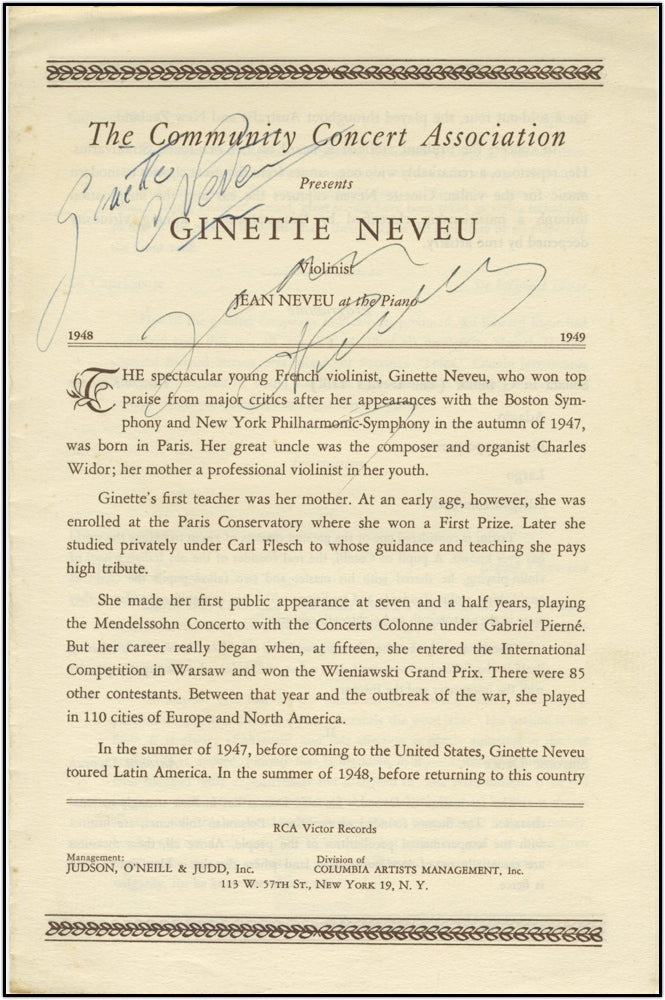 The Community Concert Association
Ginette Neveu
Presents
GINETTE NEVEU
Violinist
JEAN NEVEU at the Piano
Jean Neveu
1948 1949
THE spectacular young French violinist, Ginette Neveu, who won top
praise from major critics after her appearances with the Boston Sym-
phony and New York Philharmonic-Symphony in the autumn of 1947,
was born in Paris. Her great uncle was the composer and organist Charles
Widor; her mother a professional violinist in her youth.
Ginette's first teacher was her mother. At an early age, however, she was
enrolled at the Paris Conservatory where she won a First Prize. Later she
studied privately under Carl Flesch to whose guidance and teaching she pays
high tribute.
She made her first public appearance at seven and a half years, playing
the Mendelssohn Concerto with the Concerts Colonne under Gabriel Pierné.
But her career really began when, at fifteen, she entered the International
Competition in Warsaw and won the Wieniawski Grand Prix. There were 85
other contestants. Between that year and the outbreak of the war, she played
in 110 cities of Europe and North America.
In the summer of 1947, before coming to the United States, Ginette Neveu
toured Latin America. In the summer of 1948, before returning to this country
RCA Victor Records
Management: Division of
JUDSON, O'NEILL & JUDD, Inc. COLUMBIA ARTISTS MANAGEMENT, Inc.
113 W. 57TH ST., NEW YORK 19, N. Y.